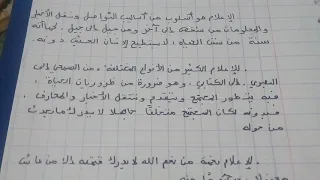 الإعلام هو أسلوب من أساليب التواصل ونقل الأخبار
والمعلومات من شخص إلى آخر ومن جيل إلى جيل،
سنة من سنن الحياة، لا يستطيع الإنسان العيش دونه.
للإعلام الكثير من الأنواع المختلفة: من السمعي إلى
البصري إلى الكتابي، وهو ضرورة من ضروريات الحياة،
فبه يتطور المجتمع ويتقدم وتنتقل الأخبار والمعارف،
فبدونه لكان المجتمع منغلقا جاهلا لا يدرك ما يحدث
من حوله
الإعلام نعمة من نعم الله لا يدرك قيمته إلا من عاش